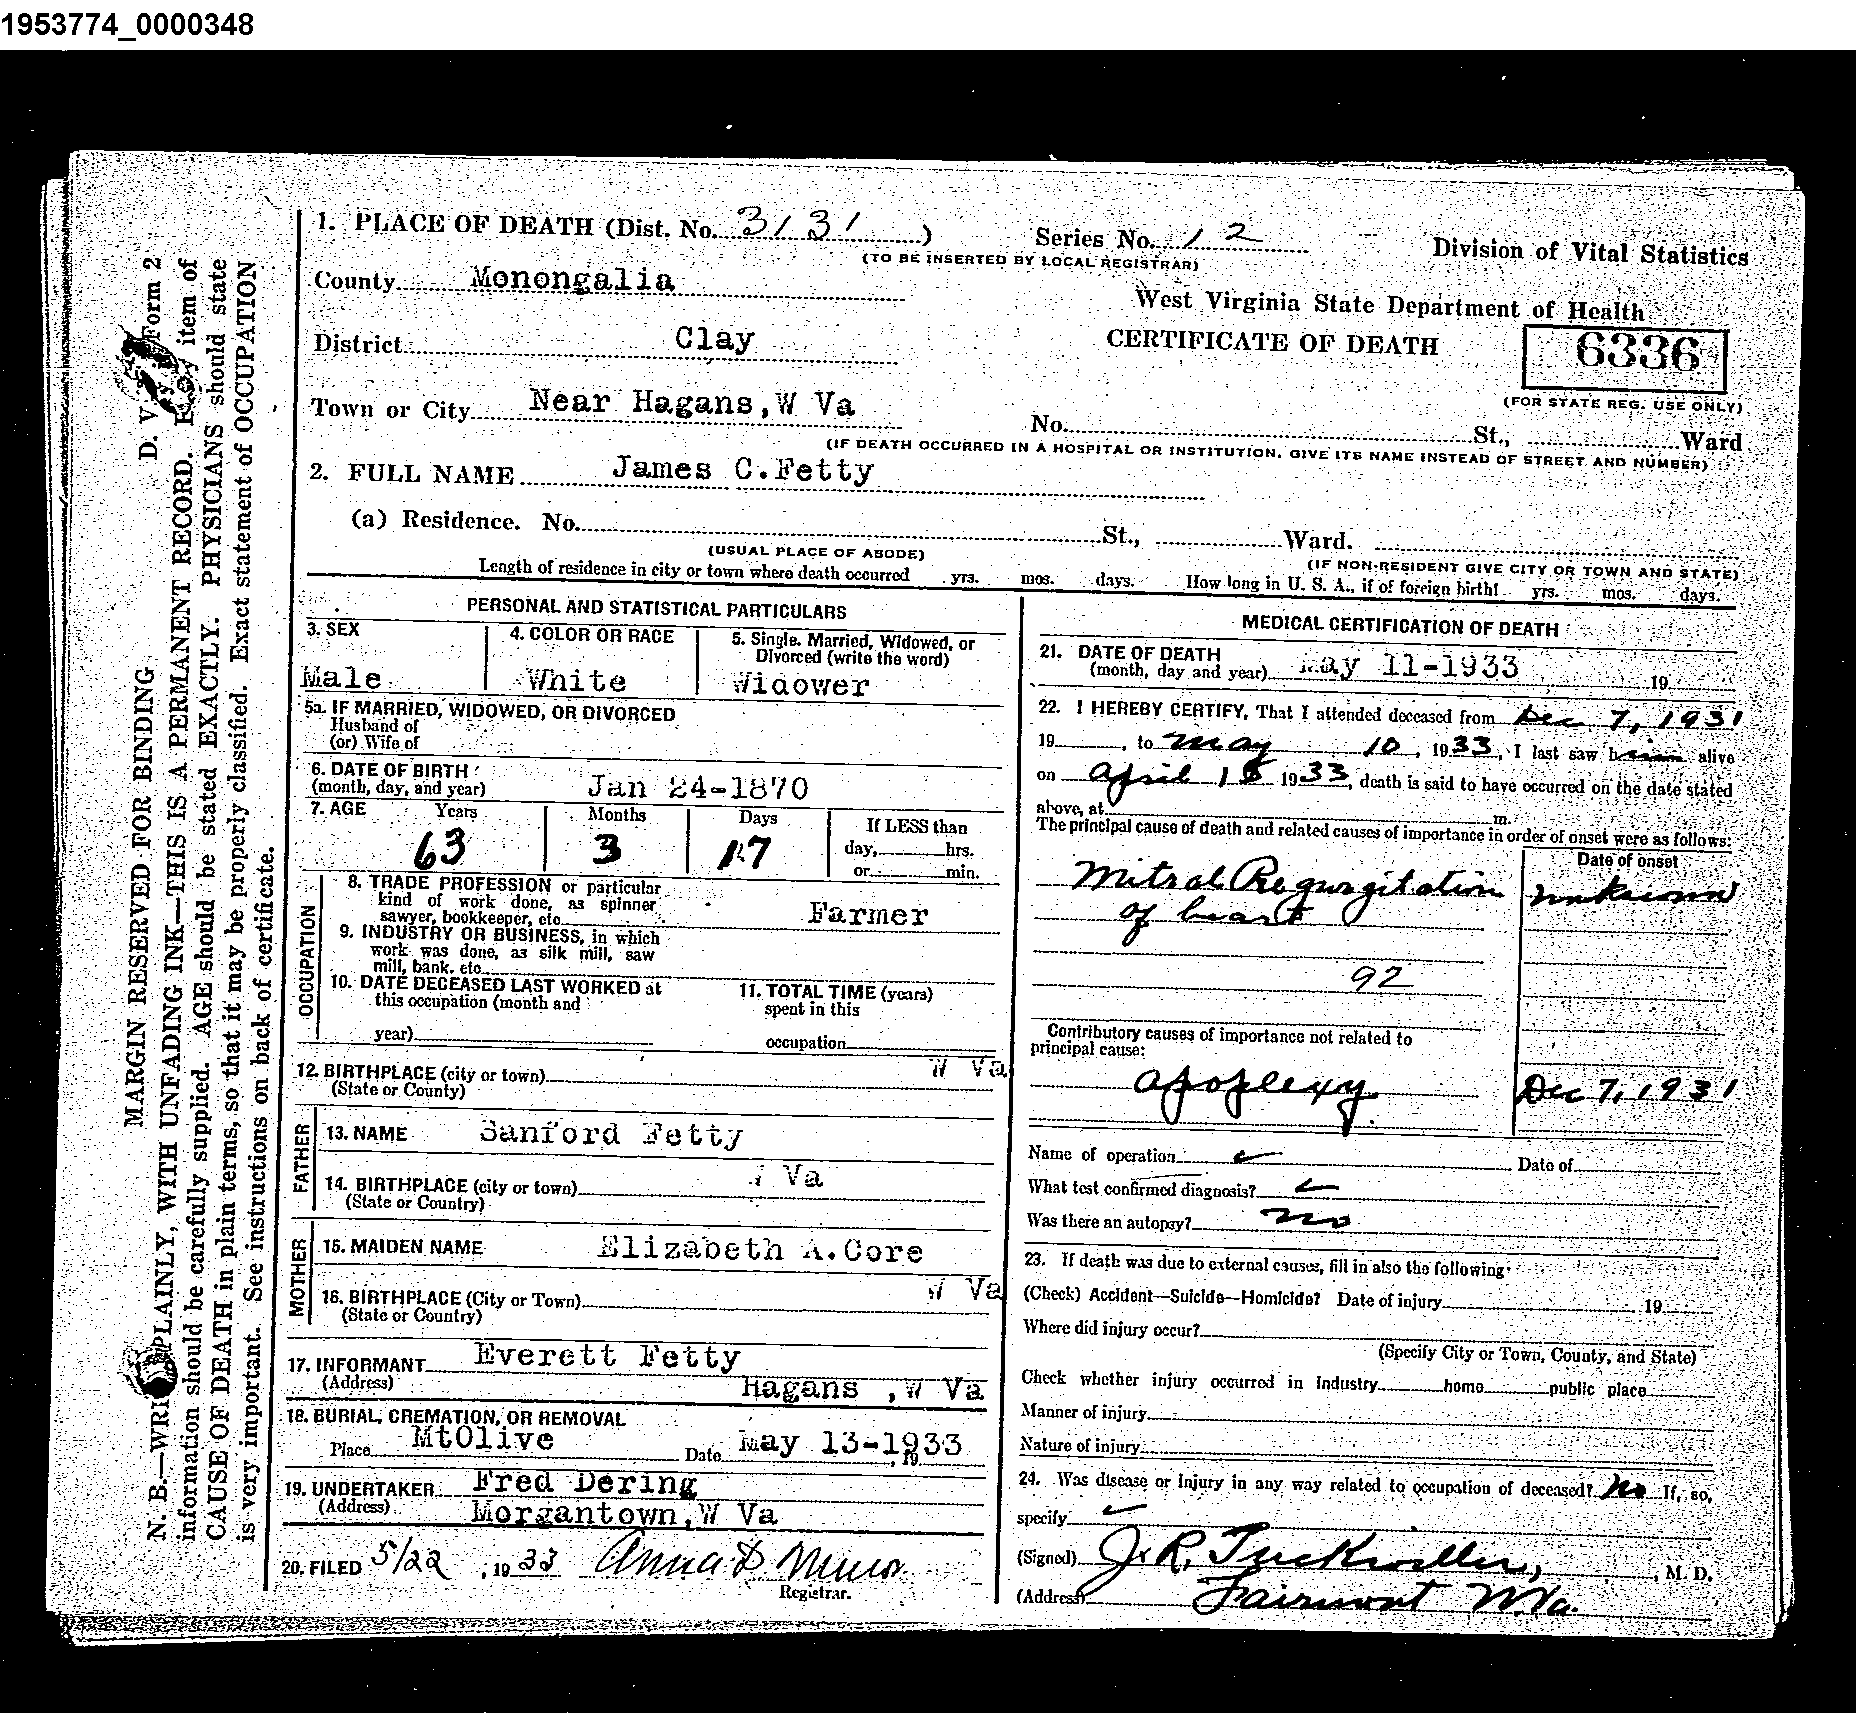 1953774_0000348
1. PLACE OF DEATH (Dist. No. 3131)
Series No. 12
(TO BE INSERTED BY LOCAL REGISTRAR)
Division of Vital Statistics
County Monongalia
West Virginia State Department of Health
District Clay
CERTIFICATE OF DEATH
6336
(FOR STATE REG. USE ONLY)
Town or City Near Hagans, W Va
No. St., Ward
(IF DEATH OCCURRED IN A HOSPITAL OR INSTITUTION, GIVE ITS NAME INSTEAD OF STREET AND NUMBER)
2. FULL NAME James C. Fetty
(a) Residence. No. St., Ward.
(USUAL PLACE OF ABODE)
(IF NON-RESIDENT GIVE CITY OR TOWN AND STATE)
Length of residence in city or town where death occurred yrs. mos. days. How long in U. S. A., if of foreign birth? yrs. mos. days.
PERSONAL AND STATISTICAL PARTICULARS
3. SEX
Male
4. COLOR OR RACE
White
5. Single, Married, Widowed, or
Divorced (write the word)
Widower
5a. IF MARRIED, WIDOWED, OR DIVORCED
Husband of
(or) Wife of
6. DATE OF BIRTH
(month, day, and year) Jan 24-1870
7. AGE Years Months Days
63 3 17
If LESS than
day, hrs.
or min.
OCCUPATION
8. TRADE PROFESSION or particular
kind of work done, as spinner
sawyer, bookkeeper, etc. Farmer
9. INDUSTRY OR BUSINESS, in which
work was done, as silk mill, saw
mill, bank, etc.
10. DATE DECEASED LAST WORKED at
this occupation (month and
year)
11. TOTAL TIME (years)
spent in this
occupation
12. BIRTHPLACE (city or town) W Va
(State or County)
FATHER
13. NAME Sanford Fetty
14. BIRTHPLACE (city or town) Va
(State or Country)
MOTHER
15. MAIDEN NAME Elizabeth A. Core
16. BIRTHPLACE (City or Town) W Va
(State or Country)
17. INFORMANT Everett Fetty
(Address) Hagans , W Va
18. BURIAL, CREMATION, OR REMOVAL
Place MtOlive Date May 13-1933, 19
19. UNDERTAKER Fred Dering
(Address) Morgantown, W Va
20. FILED 5/22, 1933 Anna D
Registrar.
MEDICAL CERTIFICATION OF DEATH
21. DATE OF DEATH
(month, day and year) May 11-1933 19
22. I HEREBY CERTIFY, That I attended deceased from Dec 7, 1931
19 , to May 10, 1933, I last saw him alive
on April 18 1933, death is said to have occurred on the date stated
above, at m.
The principal cause of death and related causes of importance in order of onset were as follows:
Date of onset
Mitral Regurgitation unknown
of heart
92
Contributory causes of importance not related to
principal cause:
apoplexy Dec 7, 1931
Name of operation Date of
What test confirmed diagnosis?
Was there an autopsy? no
23. If death was due to external causes, fill in also the following:
(Check) Accident—Suicide—Homicide? Date of injury 19
Where did injury occur?
(Specify City or Town, County, and State)
Check whether injury occurred in Industry home public place
Manner of injury
Nature of injury
24. Was disease or injury in any way related to occupation of deceased? No If, so,
specify
(Signed) J. R. Tuckwiller, M. D.
(Address) Fairmont W.Va.
D. V. Form 2
MARGIN RESERVED FOR BINDING
N. B.—WRITE PLAINLY, WITH UNFADING INK—THIS IS A PERMANENT RECORD. Every item of
information should be carefully supplied. AGE should be stated EXACTLY. PHYSICIANS should state
CAUSE OF DEATH in plain terms, so that it may be properly classified. Exact statement of OCCUPATION
is very important. See instructions on back of certificate.